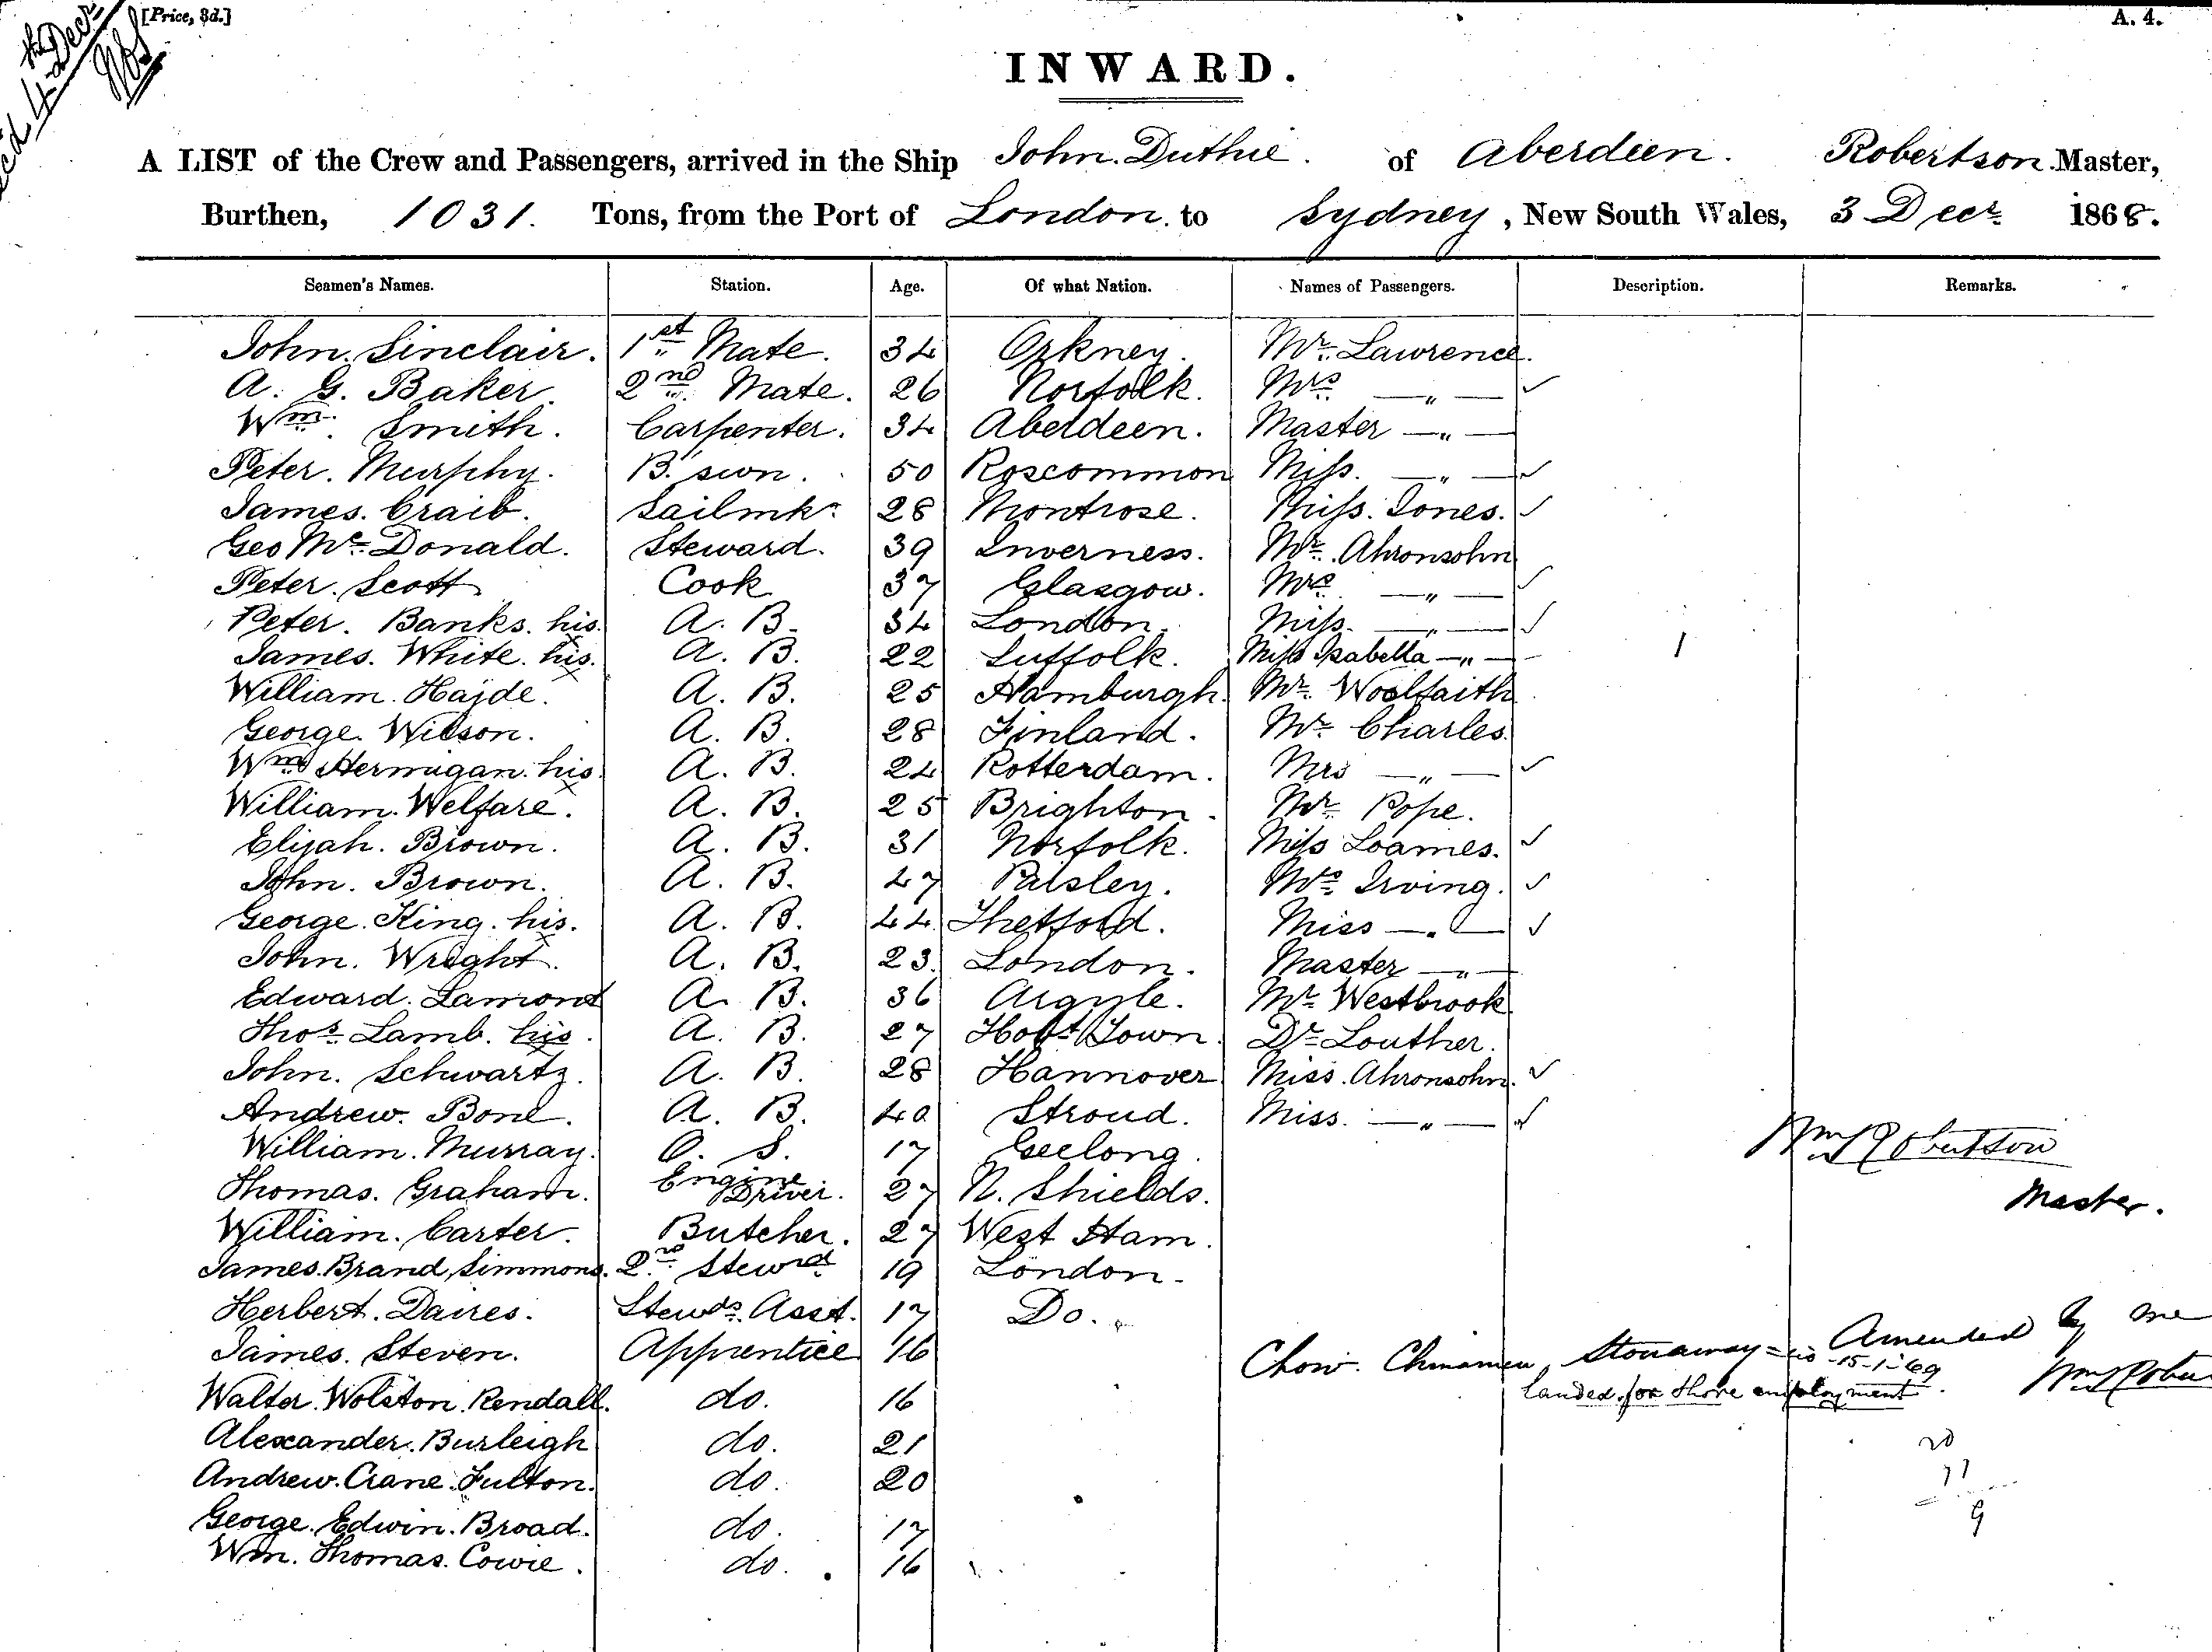 [Price, 3d.]
A. 4.
4th Decr
INWARD.
A LIST of the Crew and Passengers, arrived in the Ship John Duthie. of Aberdeen. Robertson Master,
Burthen, 1031. Tons, from the Port of London to Sydney, New South Wales, 3 Decr 1868.
Seamen's Names. Station. Age. Of what Nation. Names of Passengers. Description. Remarks.
John Sinclair. 1st Mate. 34 Orkney. Mr Lawrence.
A. G. Baker. 2nd Mate. 26 Norfolk. Mrs — " — ✓
Wm Smith. Carpenter. 34 Aberdeen. Master — " —
Peter Murphy. B'swn. 50 Roscommon Miss. — " — ✓
James Craib. Sailmkr 28 Montrose. Miss. Jones. ✓
Geo McDonald. Steward. 39 Inverness. Mr Ahronsohn
Peter Scott Cook 37 Glasgow. Mrs — " — ✓
Peter Banks his x A. B. 34 London. Miss. — " — ✓
James White his x A. B. 22 Suffolk. Miss Isabella — " — 1
William Hajde. A. B. 25 Hamburgh. Mr Woolfaith
George Wilson. A. B. 28 Finland. Mr Charles
Wm Hermigan his x A. B. 24 Rotterdam. Mrs — " — ✓
William Welfare. A. B. 25 Brighton. Mr Pope.
Elijah Brown. A. B. 31 Norfolk. Miss Loames. ✓
John Brown. A. B. 47 Paisley. Mrs Irving. ✓
George King his x A. B. 44 Thetford. Miss — " — ✓
John Wright. A. B. 23 London. Master — " —
Edward Lamont A. B. 36 Argyle. Mr Westbrook
Thos Lamb his x A. B. 27 Hobt Town Dr Louther.
John Schwartz. A. B. 28 Hannover Miss Ahronsohn. ✓
Andrew Bone. A. B. 40 Stroud. Miss. — " — ✓
William Murray. O. S. 17 Geelong.
Wm Robertson
Thomas Graham. Engine Driver. 27 N. Shields.
Master.
William Carter. Butcher. 27 West Ham.
James Brand Simmons. 2nd Stewrd 19 London.
Herbert Daires. Stewds Asst. 17 Do.
James Steven. Apprentice 16
Chow Chinamen, Stowaway = Amended by me
15-1-69
landed for shore employment.
Walter Wolston Rendall. do. 16
Alexander Burleigh do. 21
20
Andrew Crane Fulton. do. 20
11
George Edwin Broad. do. 17
9
Wm. Thomas Cowie. do. 16